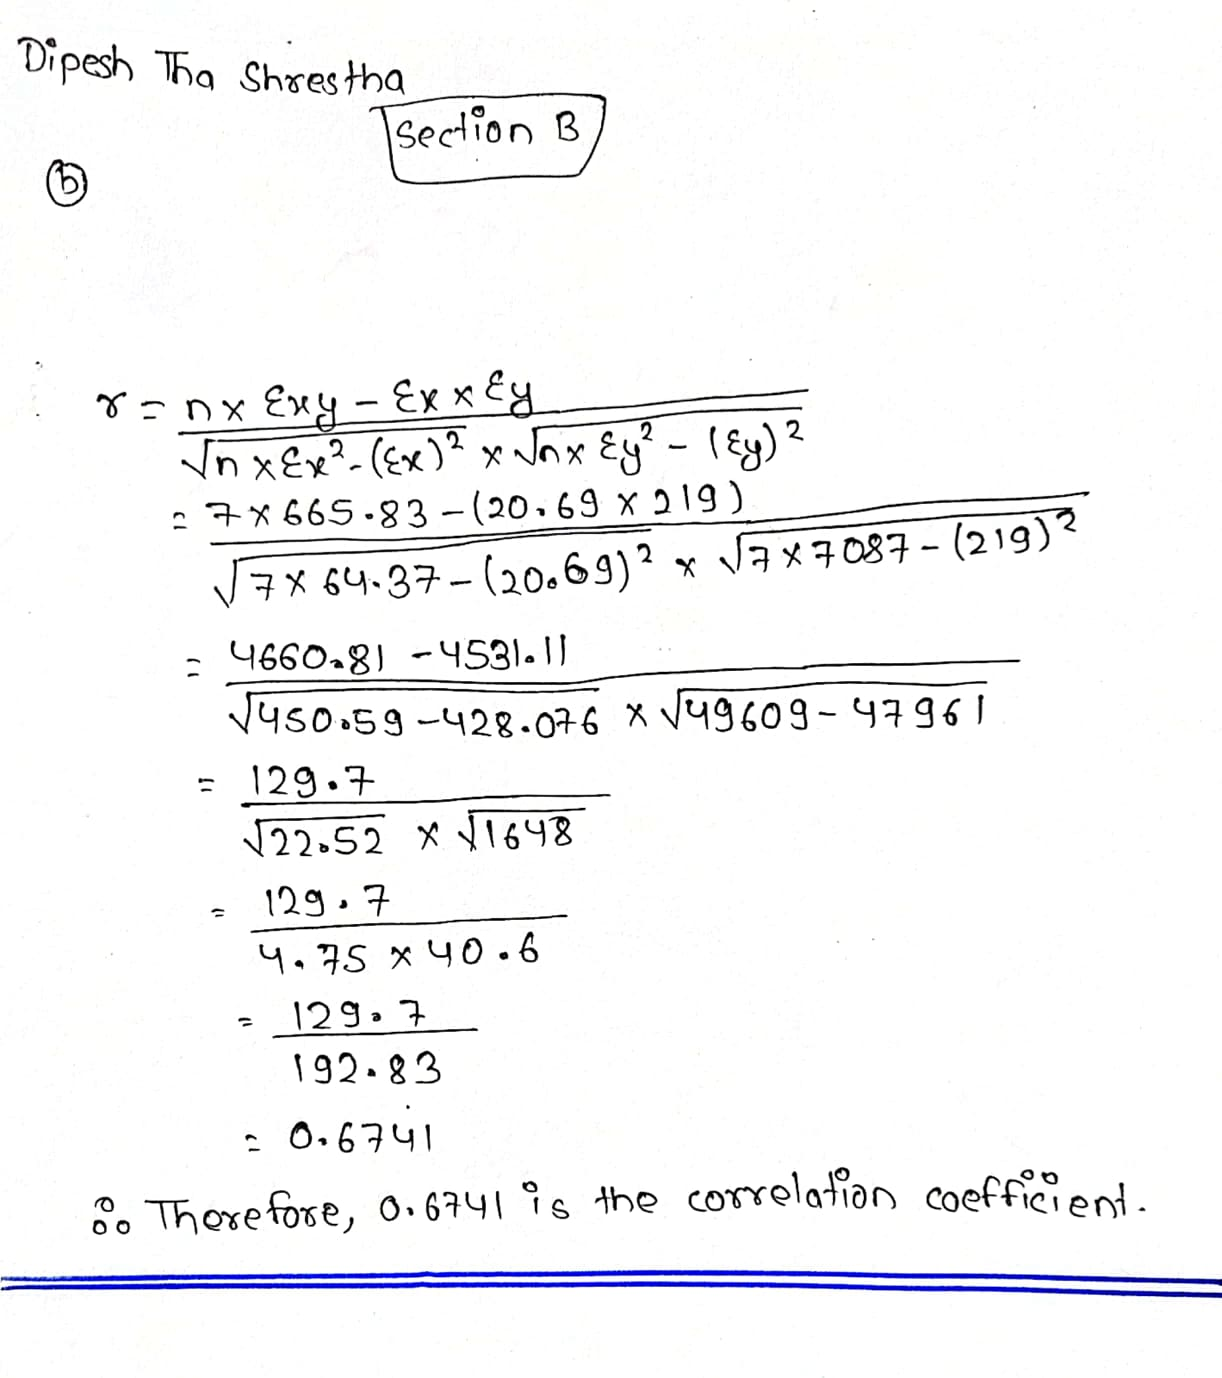 Dipesh Tha Shrestha
Section B
b
r = n x Σxy - Σx x Σy
√n x Σx² - (Σx)² x √n x Σy² - (Σy)²
= 7 x 665.83 - (20.69 x 219)
√7 x 64.37 - (20.69)² x √7 x 7087 - (219)²
= 4660.81 - 4531.11
√450.59 - 428.076 x √49609 - 47961
= 129.7
√22.52 x √1648
= 129.7
4.75 x 40.6
= 129.7
192.83
= 0.6741
∴ Therefore, 0.6741 is the correlation coefficient.